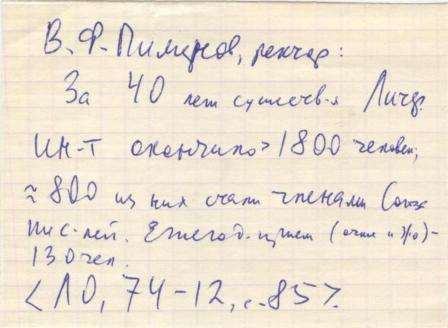 В. Ф. Пименов, ректор:
За 40 лет существ-я Лит.
ин-т окончило >1800 человек,
≈ 800 из них стали членами Союза
пис-лей. Ежегод. прием (очн и з/о) -
130 чел.
<ЛО, 74-12, с. 85>.